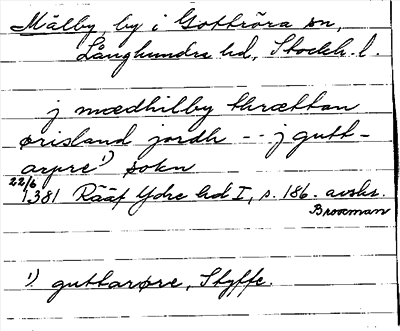 Mälby by i Gottröra sn,
Långhundra hd, Stockh. l.
j mædhilby thrættan
ørisland jordh -- j gutt-
arpre¹) sokn
22/6 1381 Rääf Ydre hd I, s. 186. avskr.
Brooman
¹) guttarøre, Styffe.